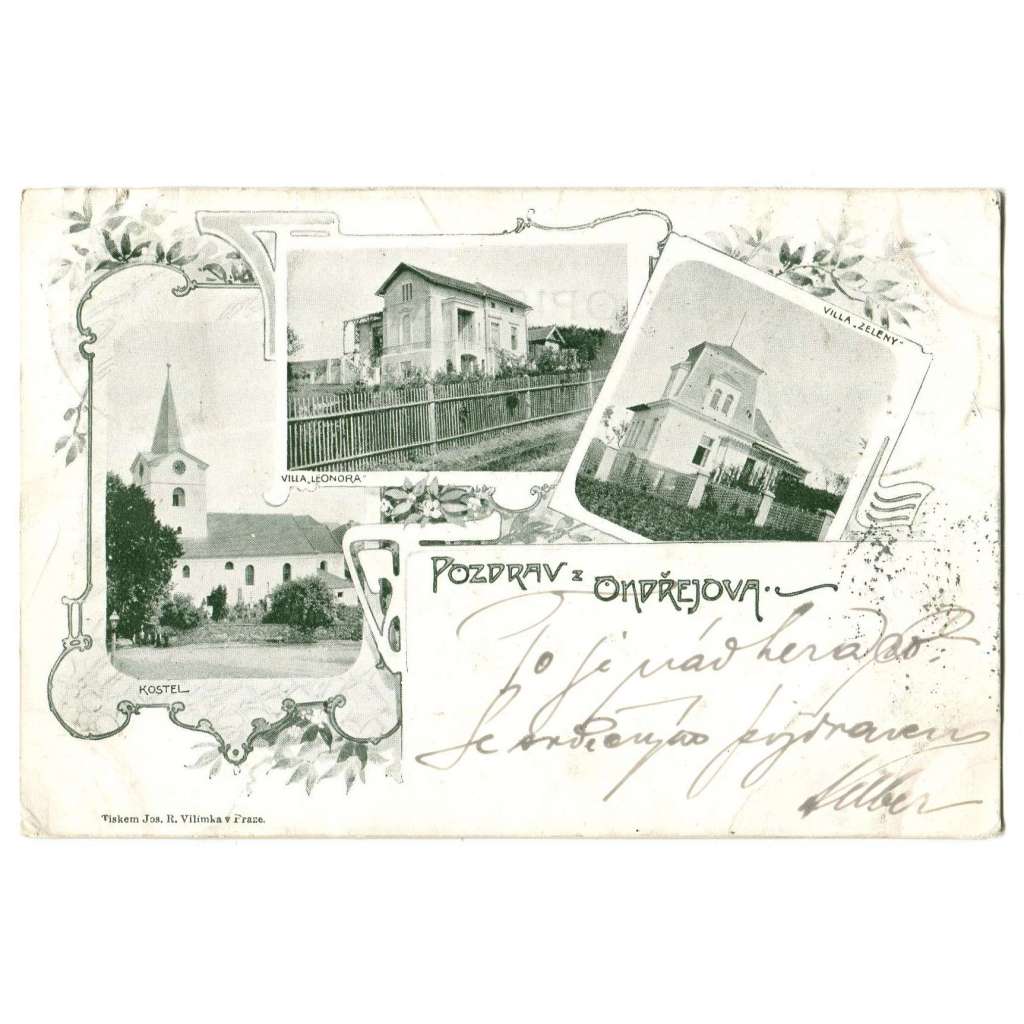 VILLA „ZELENY“
VILLA „LEONORA“
POZDRAV z
ONDŘEJOVA.
To je nádhera
Se srdečným pozdravem
KOSTEL
Tiskem Jos. R. Vilímka v Praze.